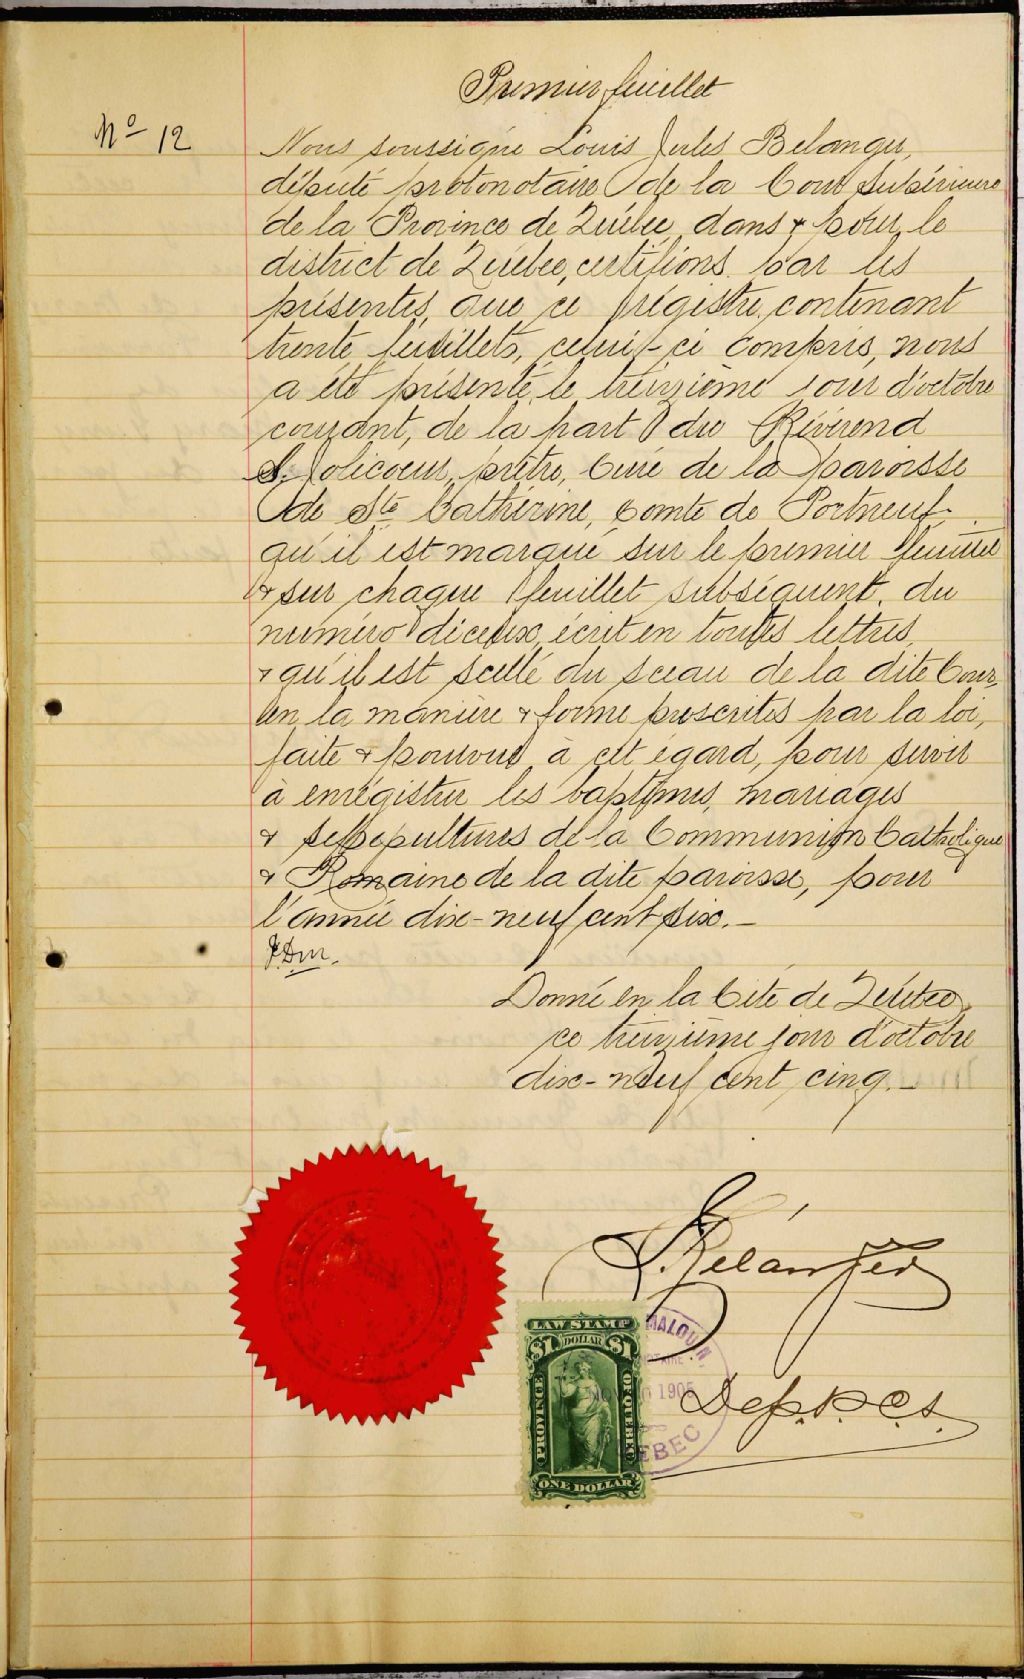 Premier feuillet
No 12
Nous soussigné Louis Jules Belanger,
député protonotaire de la Cour Supérieure
de la Province de Québec, dans & pour le
district de Québec, certifions par les
présentes, que ce régistre, contenant
trente feuillets, celui-ci compris, nous
a été présenté, le treizième jour d'octobre
courant, de la part du Révérend
S. Jolicoeur, prêtre, Curé de la paroisse
de Ste Cathérine, Comté de Portneuf,
qu'il est marqué sur le premier feuillet
& sur chaque feuillet subséquent, du
numéro écrit en toutes lettres
& qu'il est scellé du sceau de la dite Cour,
en la manière & forme prescrites par la loi,
faite & pourvue à cet égard, pour servir
à enrégistrer les baptêmes, mariages
& sépultures de la Communion Catholique
& Romaine de la dite paroisse, pour
l'année dix-neuf cent six.-
Donné en la Cité de Québec,
ce treizième jour d'octobre
dix-neuf cent cinq.-
Bélanger
LAW STAMP
$1 DOLLAR $1
PROVINCE OF QUEBEC
ONE DOLLAR
MALOUIN
1905
EBEC
Dep. P. C. S.